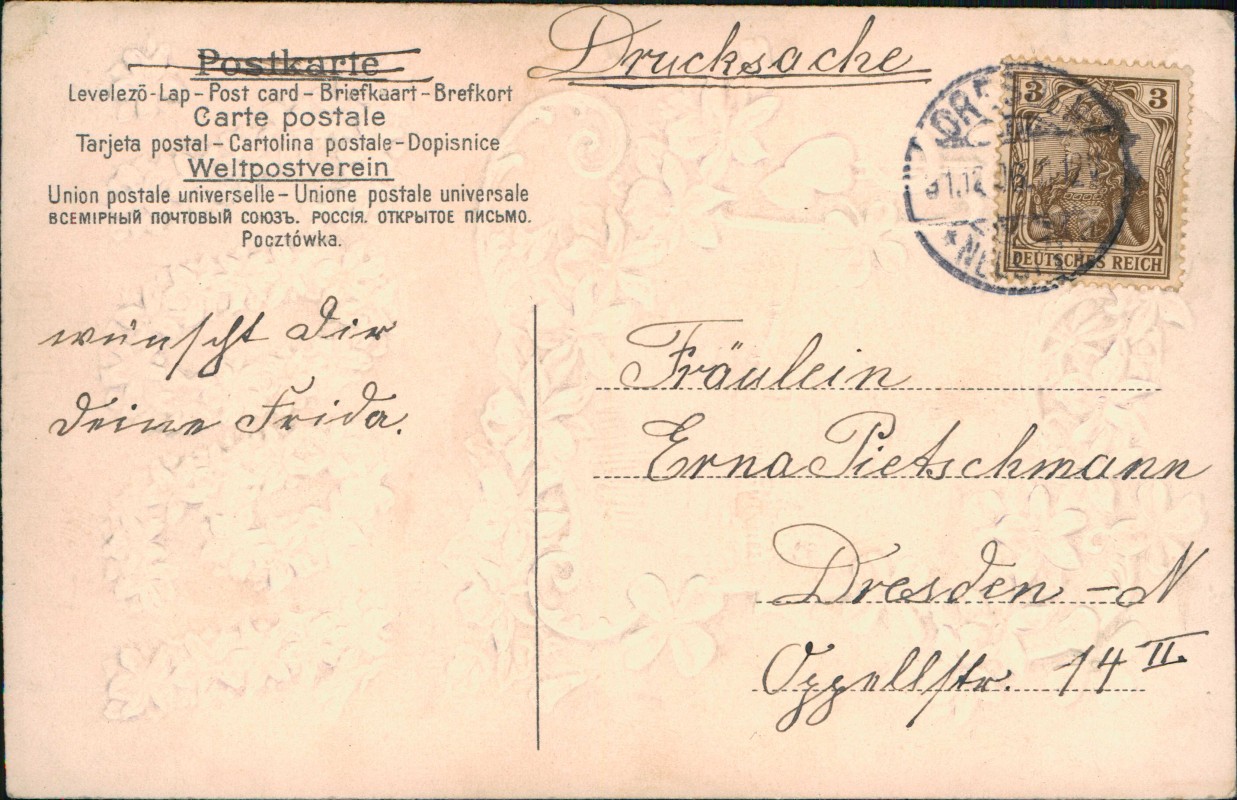 Drucksache
Postkarte
Levelező-Lap - Post card - Briefkaart - Brefkort
Carte postale
Tarjeta postal - Cartolina postale - Dopisnice
Weltpostverein
Union postale universelle - Unione postale universale
ВСЕМІРНЫЙ ПОЧТОВЫЙ СОЮЗЪ. РОССІЯ. ОТКРЫТОЕ ПИСЬМО.
Pocztówka.
3 3
DEUTSCHES REICH
wünscht Dir
Deine Frida.
Fräulein
Erna Pietschmann
Dresden - N
Oppellstr. 14 II